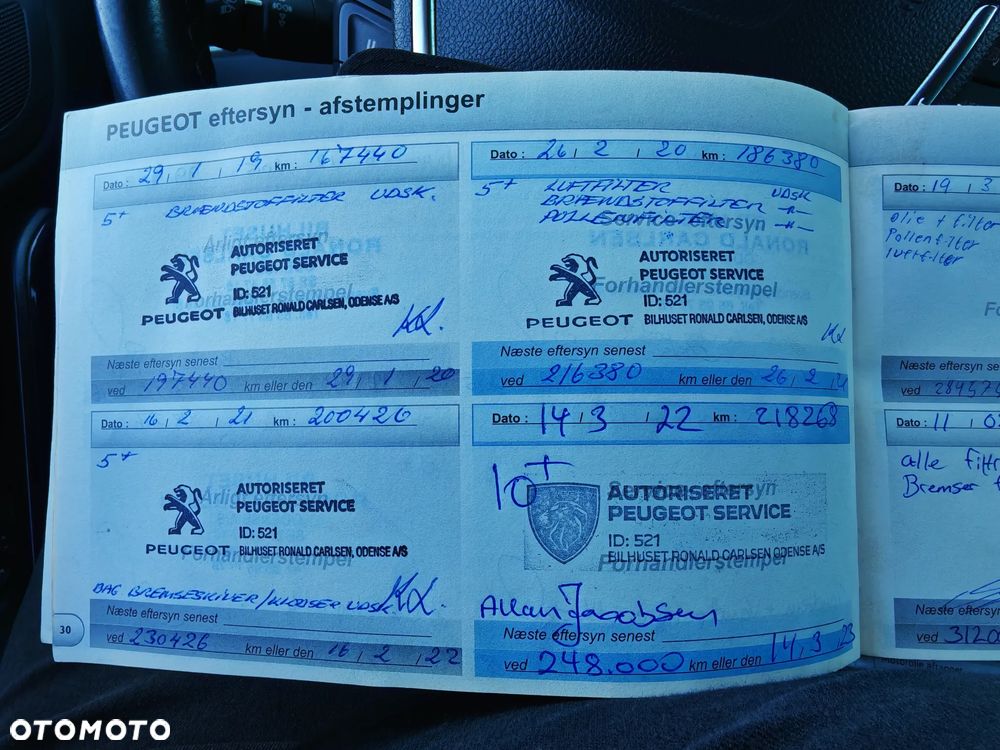 PEUGEOT eftersyn - afstemplinger
Dato : 29 / 01 / 19 km : 167440
5+ BRÆNDSTOFFILTER UDSK.
AUTORISERET
PEUGEOT SERVICE
ID: 521
PEUGEOT BILHUSET RONALD CARLSEN, ODENSE A/S
Forhandlerstempel
Næste eftersyn senest
ved 197440 km eller den 29 / 1 / 20
Dato : 26 / 2 / 20 km : 186380
5+ LUFTFILTER UDSK
BRÆNDSTOFFILTER -"-
POLLENFILTER -"-
Service eftersyn
AUTORISERET
PEUGEOT SERVICE
Forhandlerstempel
ID: 521
PEUGEOT BILHUSET RONALD CARLSEN, ODENSE A/S
Næste eftersyn senest
ved 216380 km eller den 26 / 2 /
Dato : 16 / 2 / 21 km : 200426
5+
AUTORISERET
Årligt eftersyn
PEUGEOT SERVICE
ID: 521
PEUGEOT BILHUSET RONALD CARLSEN, ODENSE A/S
Forhandlerstempel
BAG BREMSESKIVER/KLODSER UDSK
Næste eftersyn senest
ved 230426 km eller den 16 / 2 / 22
Dato : 14 / 3 / 22 km : 218268
10+
Service eftersyn
AUTORISERET
PEUGEOT SERVICE
ID: 521
BILHUSET RONALD CARLSEN ODENSE A/S
Forhandlerstempel
Allan Jacobsen
Næste eftersyn senest
ved 248.000 km eller den 14 / 3 / 23
30
Dato : 19 / 3
Olie + filter
Pollenfilter
luftfilter
Næste eftersyn
ved
Dato : 11 /
alle filtr
Bremser
Næste eftersyn
ved 3120
OTOMOTO